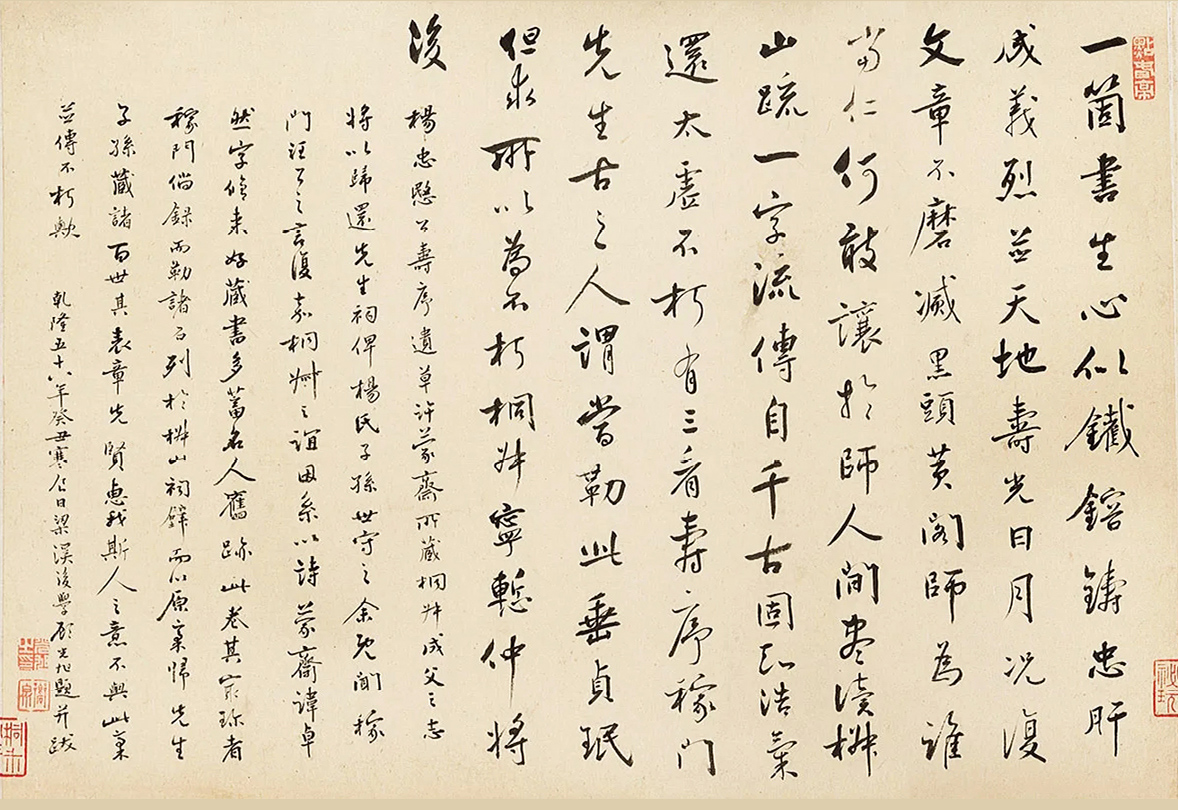 一箇書生心似鐵鎔鑄忠肝
成義烈並天地壽光日月況復
文章不磨滅黑頭黃閣師為誰
當仁何敢讓於師人間盡讀椒
山疏一字流傳自千古固知浩氣
還太虛不朽有三看壽序稼門
先生古之人謂當勒此垂貞珉
但求所以為不朽桐艸寧慙仲將
後
楊忠愍公壽序遺草許蒙齋所藏桐艸成父之志
將以歸還先生祠俾楊氏子孫世守之余既聞稼
門汪公之言復嘉桐艸之誼因系以詩蒙齋諱卓
然字脩來好藏書多蓄名人舊跡此卷其冣珍者
稼門倘録而勒諸石列於椒山祠壁而以原稾歸先生
子孫藏諸百世其表章先賢惠我斯人之意不與此稾
並傳不朽歟 乾隆五十八年癸丑寒食日梁溪後學顧光旭題并跋
祕玩